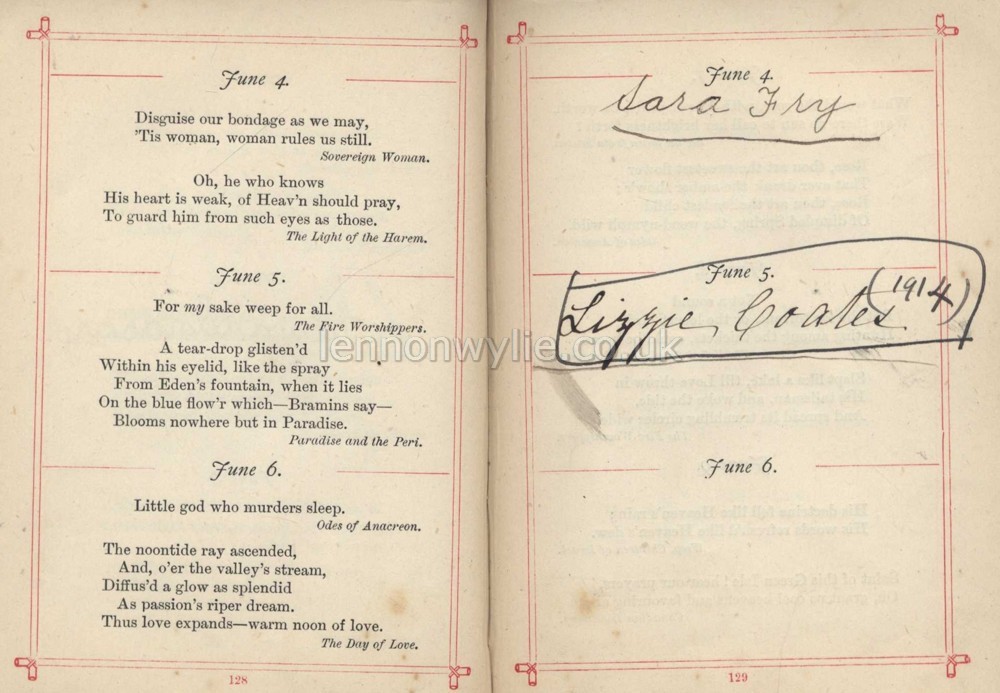 June 4.
Disguise our bondage as we may,
'Tis woman, woman rules us still.
Sovereign Woman.
Oh, he who knows
His heart is weak, of Heav'n should pray,
To guard him from such eyes as those.
The Light of the Harem.
June 5.
For my sake weep for all.
The Fire Worshippers.
A tear-drop glisten'd
Within his eyelid, like the spray
From Eden's fountain, when it lies
On the blue flow'r which—Bramins say—
Blooms nowhere but in Paradise.
Paradise and the Peri.
June 6.
Little god who murders sleep.
Odes of Anacreon.
The noontide ray ascended,
And, o'er the valley's stream,
Diffus'd a glow as splendid
As passion's riper dream.
Thus love expands—warm noon of love.
The Day of Love.
128
June 4.
Sara Fry
June 5.
Lizzie Coates (1914)
June 6.
129
lennonwylie.co.uk